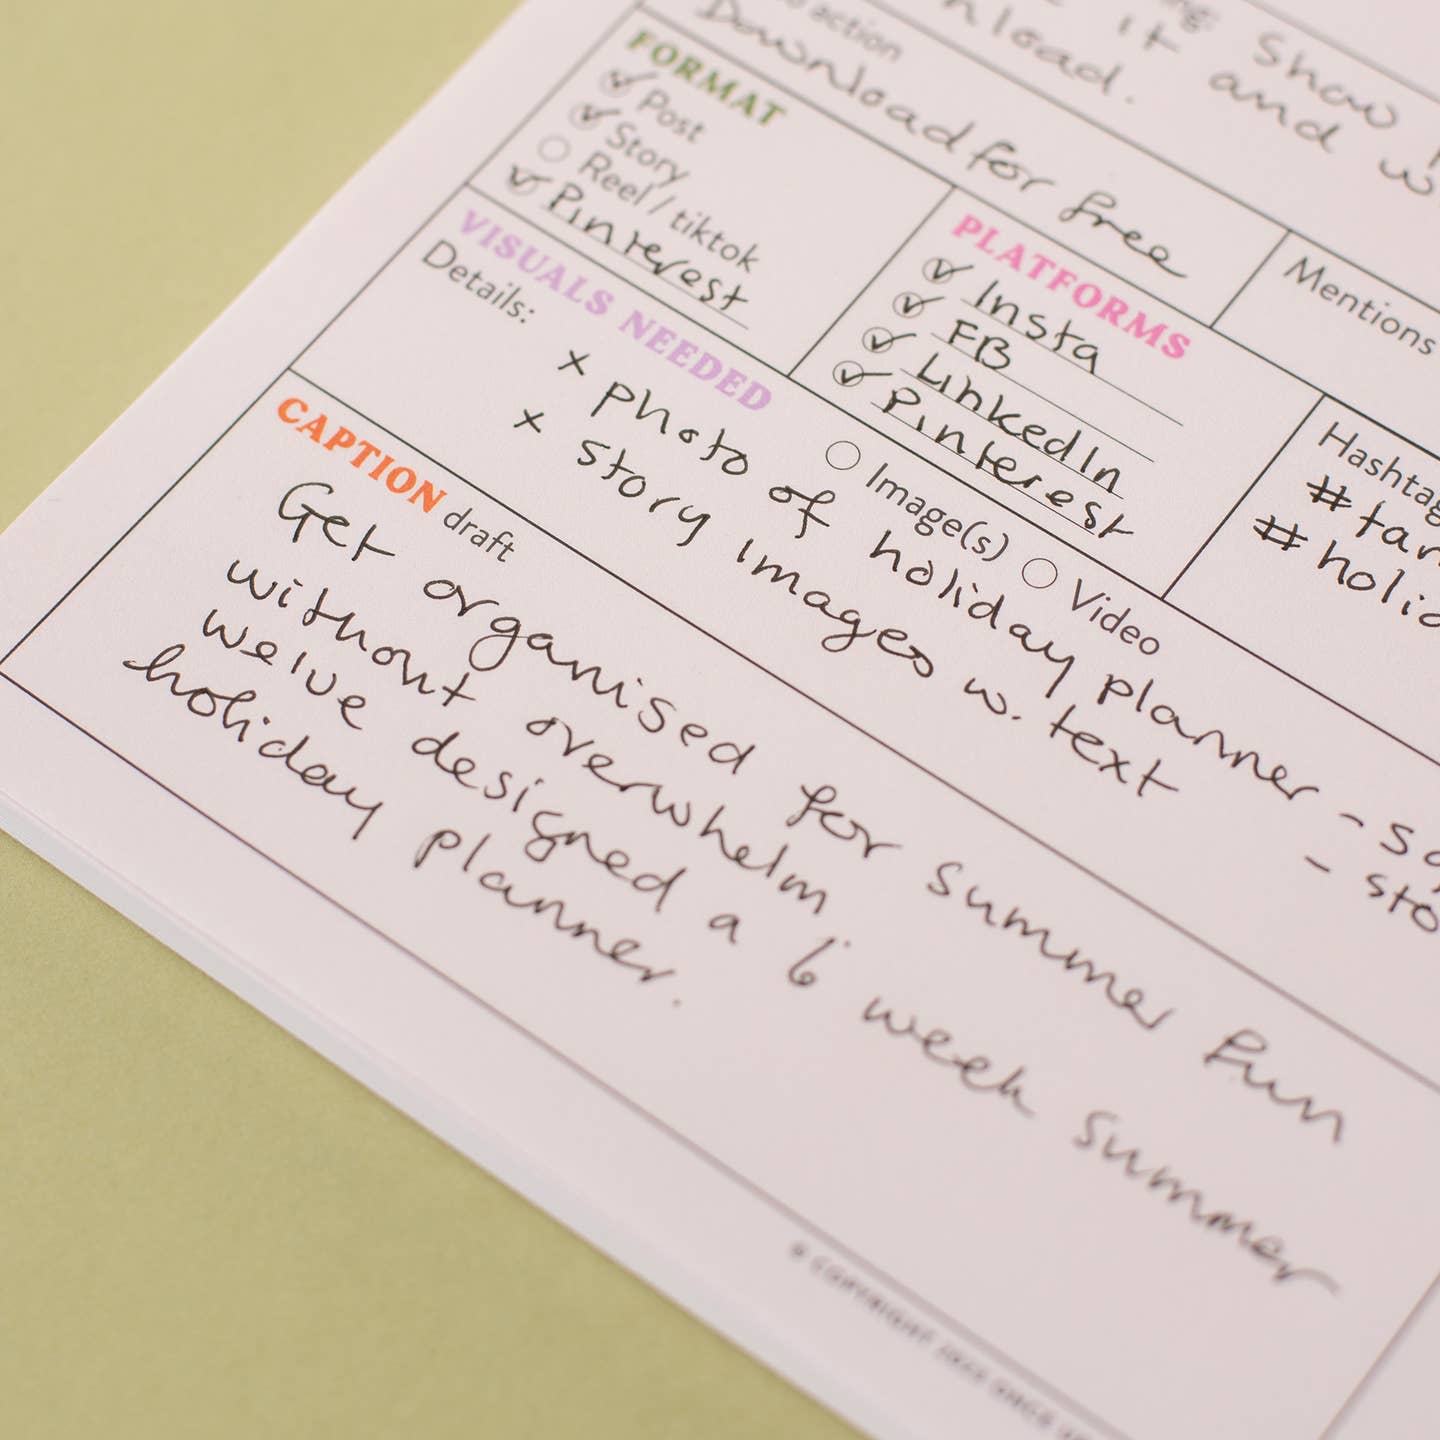 Show
it and
action
Download for free
FORMAT
Post
Story
Reel / tiktok
Pinterest
PLATFORMS
Insta
FB
LinkedIn
Pinterest
Mentions
#
#
VISUALS NEEDED
Image(s) Video
Details:
x photo of holiday planner -
x story images w. text -
CAPTION draft
Get organised for summer fun
without overwhelm
we've designed a 6 week summer
holiday planner.
© COPYRIGHT